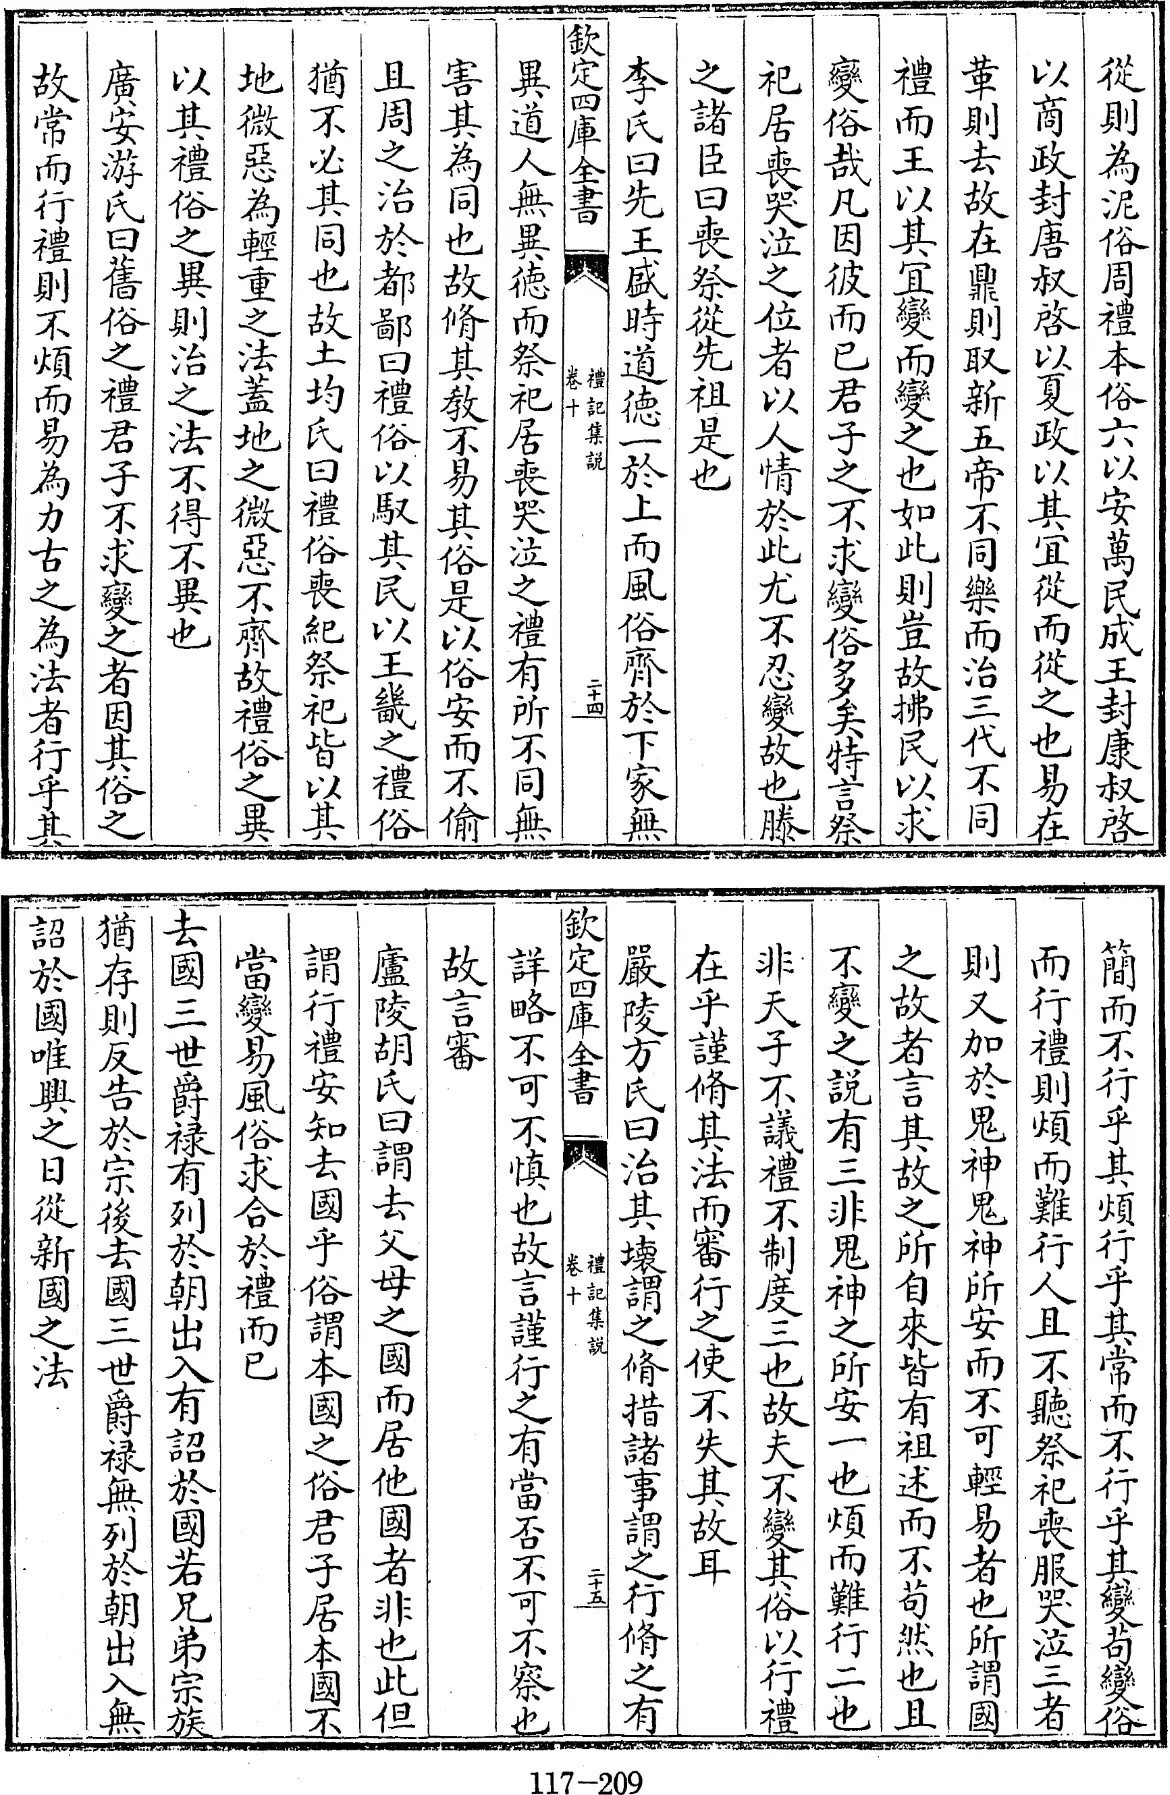 從則為泥俗周禮本俗六以安萬民成王封康叔啓
以商政封唐叔啓以夏政以其宜從而從之也易在
革則去故在鼎則取新五帝不同樂而治三代不同
禮而王以其宜變而變之也如此則豈故拂民以求
變俗哉凡因彼而已君子之不求變俗多矣特言祭
祀居喪哭泣之位者以人情於此尤不忍變故也滕
之諸臣曰喪祭從先祖是也
李氏曰先王盛時道德一於上而風俗齊於下家無
欽定四庫全書
禮記集説
卷十
二十四
異道人無異德而祭祀居喪哭泣之禮有所不同無
害其為同也故脩其教不易其俗是以俗安而不偷
且周之治於都鄙曰禮俗以馭其民以王畿之禮俗
猶不必其同也故土均氏曰禮俗喪紀祭祀皆以其
地微惡為輕重之法蓋地之微惡不齊故禮俗之異
以其禮俗之異則治之法不得不異也
廣安游氏曰舊俗之禮君子不求變之者因其俗之
故常而行禮則不煩而易為力古之為法者行乎其
簡而不行乎其煩行乎其常而不行乎其變苟變俗
而行禮則煩而難行人且不聽祭祀喪服哭泣三者
則又加於鬼神鬼神所安而不可輕易者也所謂國
之故者言其故之所自來皆有祖述而不苟然也且
不變之説有三非鬼神之所安一也煩而難行二也
非天子不議禮不制度三也故夫不變其俗以行禮
在乎謹脩其法而審行之使不失其故耳
嚴陵方氏曰治其壞謂之脩措諸事謂之行脩之有
欽定四庫全書
禮記集説
卷十
二十五
詳略不可不慎也故言謹行之有當否不可不察也
故言審
廬陵胡氏曰謂去父母之國而居他國者非也此但
謂行禮安知去國乎俗謂本國之俗君子居本國不
當變易風俗求合於禮而已
去國三世爵祿有列於朝出入有詔於國若兄弟宗族
猶存則反告於宗後去國三世爵祿無列於朝出入無
詔於國唯興之日從新國之法
117-209